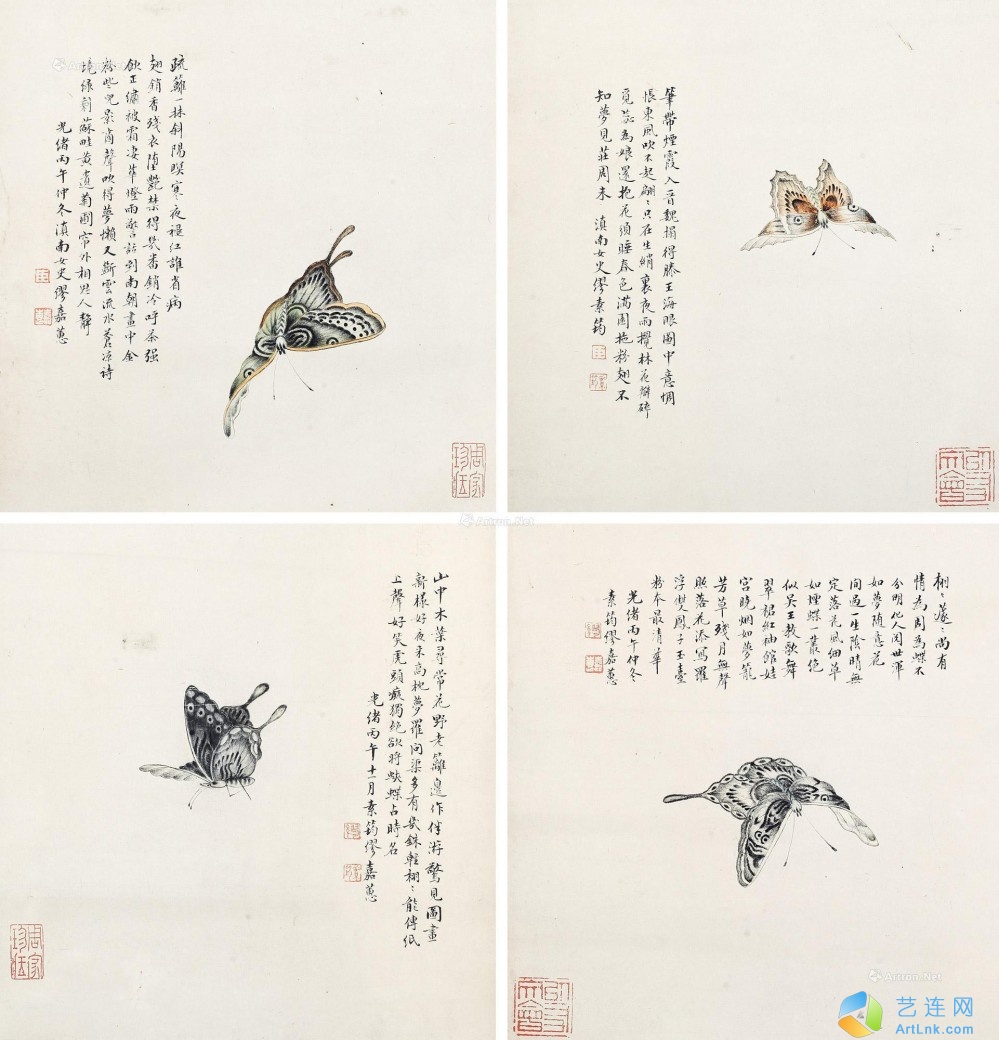 疏籬一抹斜陽暝寒夜褪紅誰省病
翅銷香殘衣墮艷禁得幾番銷冷呼茶強
飲正繡被霜凄華燈雨警話到南朝畫中金
粉些兒影商聲吹得夢懶又斷雲流水蒼凉詩
境綠剗蘇畦黃遺菊圃簾外相思人靜
光緒丙午仲冬滇南女史繆嘉蕙
筆帶煙霞入晉魏搨得滕王海眼圖中意惆
悵東風吹不起翩〻只在生綃裏夜雨攪林花瓣碎
覓蕊為糧還抱花須睡春色滿園拖粉翅不
知夢見莊周未 滇南女史繆素筠
山中木葉尋常花野老籬邊作伴游驚見圖畫
新樣好夜來高枕夢羅問渠多有幾銖輕栩〻能傳紙
上聲好笑虎頭癡獨絕欲將蛺蝶占時名
光緒丙午十一月素筠繆嘉蕙
栩〻蘧〻尚有
情為周為蝶不
分明他人閱世渾
如夢隨意花
間過一生陰晴無
定落花風細草
如煙蝶一叢絕
似吴王教歌舞
翠裙紅袖館娃
宮曉烟如夢籠
芳草殘月無聲
照落花添寫羅
浮雙鳳子玉臺
粉本最清華
光緒丙午仲冬
素筠繆嘉蕙
Artron.Net
艺连网
ArtLnk.com